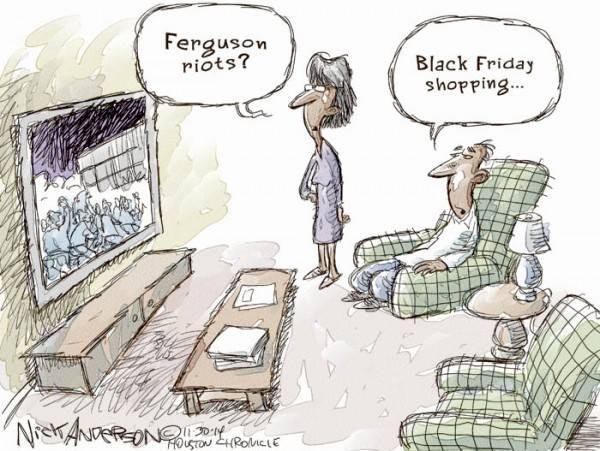 Ferguson
riots?
Black Friday
shopping...
Nick Anderson © 11·30·14
Houston Chronicle